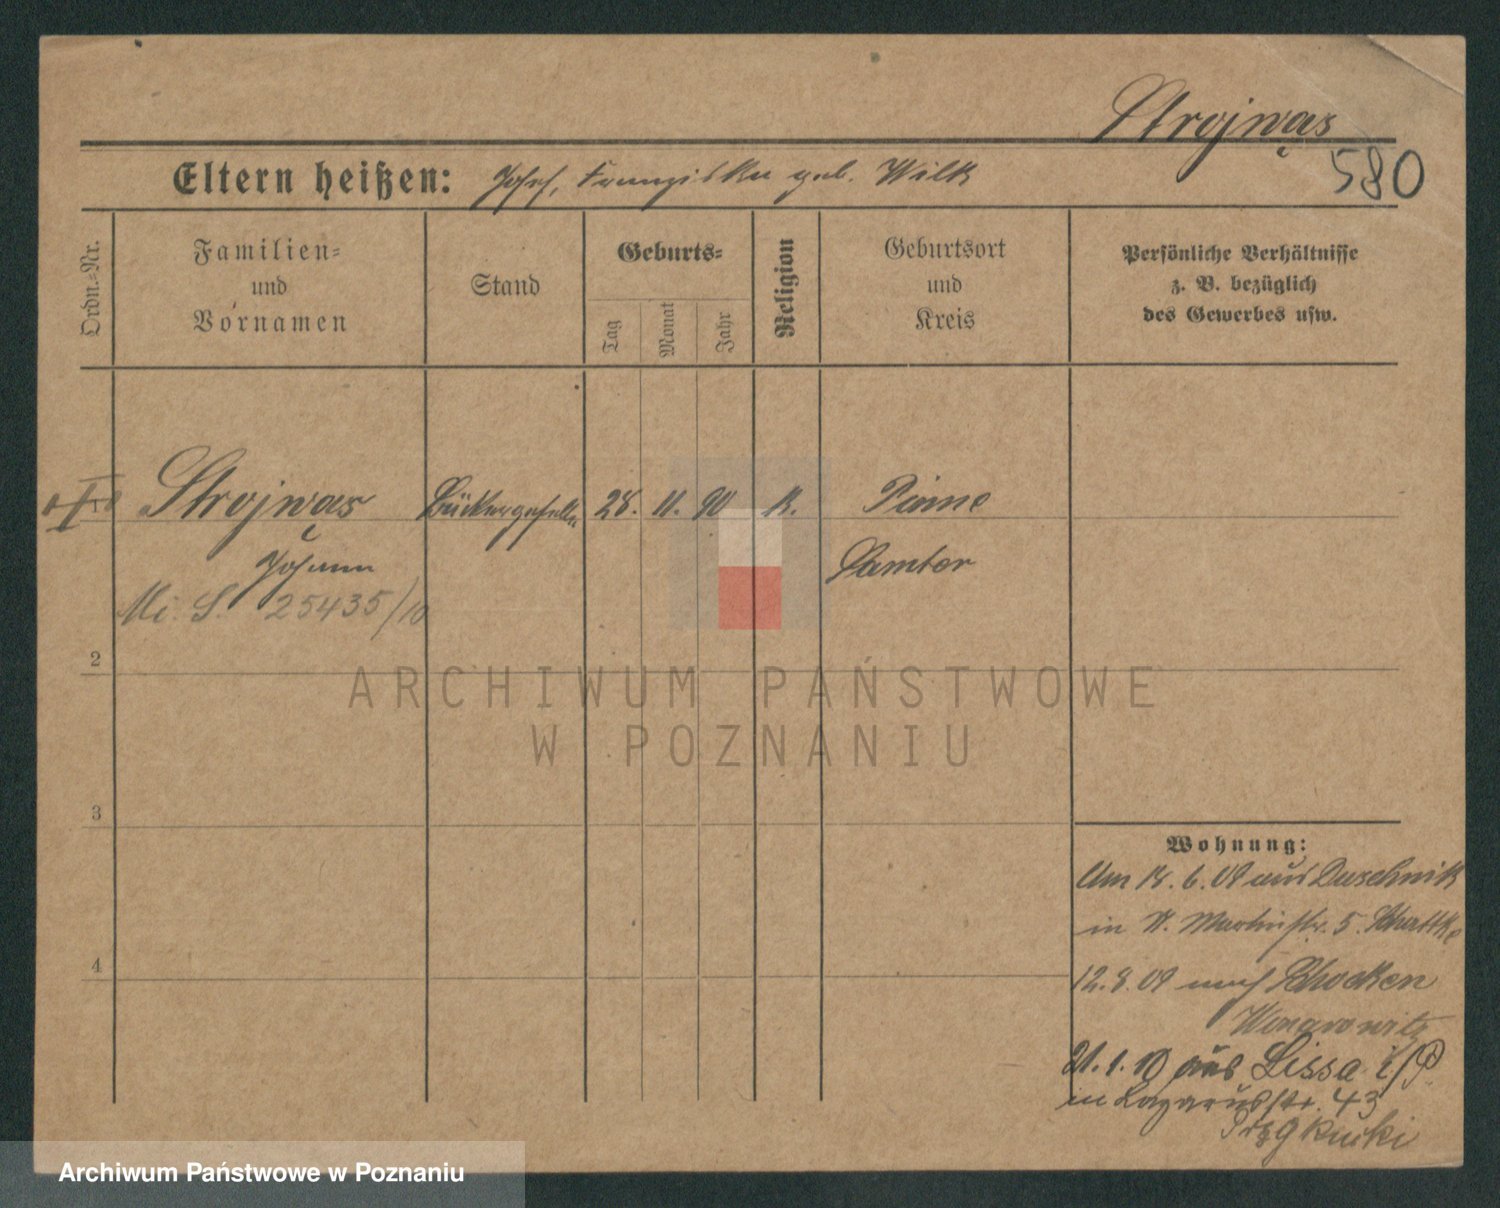 Strojwąs
580
Eltern heißen: Josef, Franziska geb. Wilk
Ordn.-Nr.
Familien-
und
Vornamen
Stand
Geburts-
Tag
Monat
Jahr
Religion
Geburtsort
und
Kreis
Persönliche Verhältnisse
z. B. bezüglich
des Gewerbes usw.
Strojwąs Bäckergeselle 28. 11. 90 k. Pinne
Johann Samter
Mi. S. 25435/10
2
3
4
Wohnung:
Am 18. 6. 09 aus Duschnik
in St. Martinstr. 5.
12. 8. 09 nach Schocken
Wongrowitz
21. 1. 10 aus Lissa i/P
in Lazarusstr. 43
ARCHIWUM PAŃSTWOWE
W POZNANIU
Archiwum Państwowe w Poznaniu